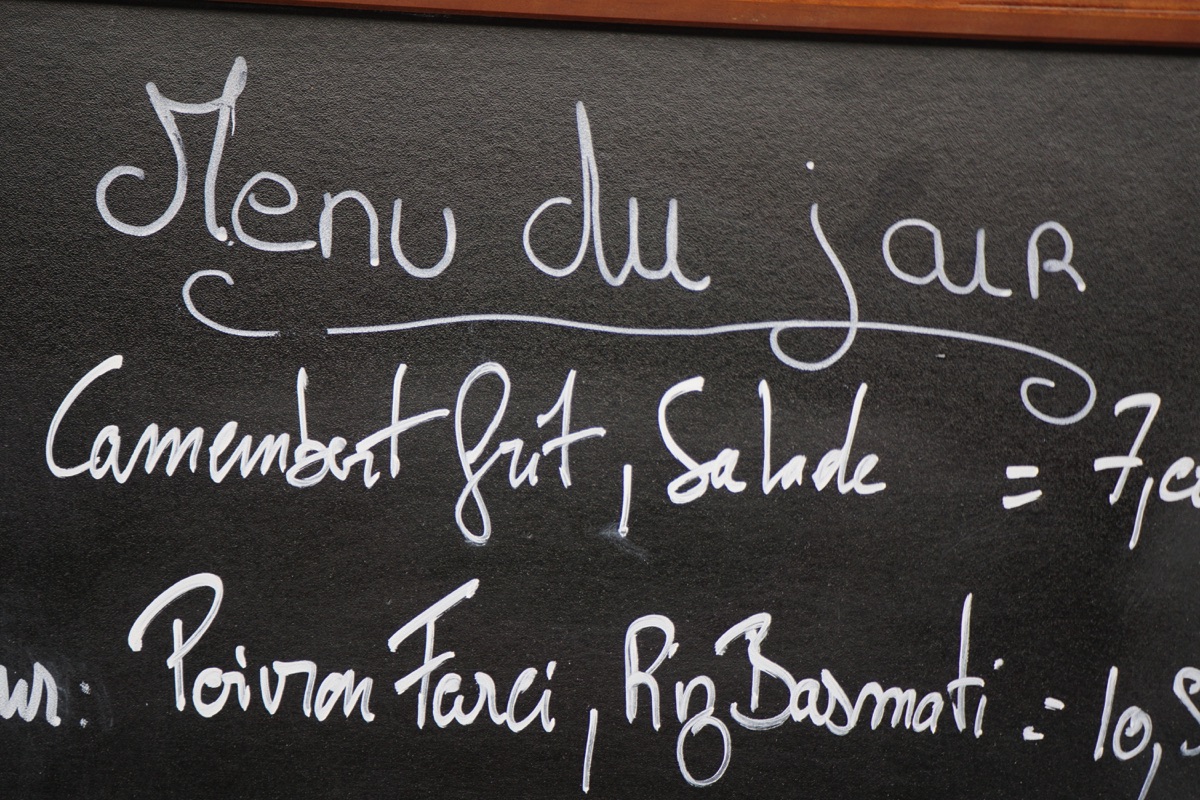 Menu du jour
Camembert frit, Salade = 7,
Poivron Farci, Riz Basmati = 10,